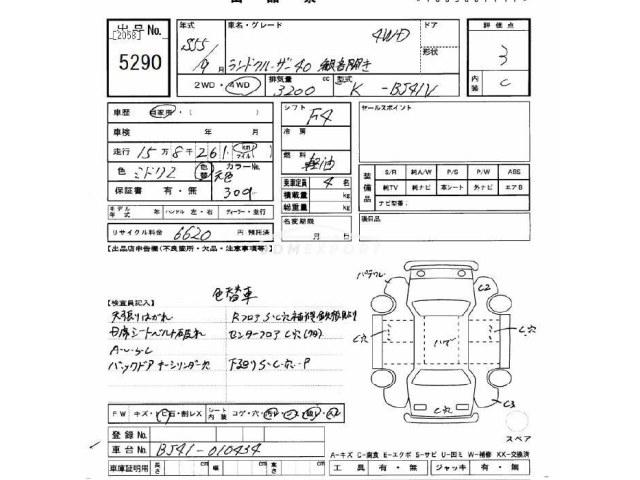 出品号 No. [2058]
5290
年式 S55/9月
車名・グレード ランドクルーザー40 観音開き
4WD
ドア
形状
評価点 3
内装 C
2WD・4WD
排気量 3200 cc
型式 K-BJ41V
車歴 自家用・( )
シフト F4
セールスポイント
車検 年 月
冷房
走行 15万8千261 (km マイル)
燃料 軽油
色 ミドリ2 色替 元色
カラーNo. 309
保証書 有・無
乗車定員 4名
積載量 kg
総重量 kg
装備品 S/R 純A/W P/S P/W ABS
純TV 純ナビ 革シート 外ナビ エアB
ナビ型番:
モデル年式 年 ハンドル 左・右 ディーラー・並行
名変期限 月 日
リサイクル料金 6620 円 預託済
【出品店申告欄(不良箇所・欠品・注意事項等)】
色替車
【検査員記入】
天張りはがれ
Rフロア S・C穴補修鉄板貼り
シートベルト
センターフロア C穴
A-U-S-C
下廻りS・C・穴・P
C2
C穴
C穴
C穴
C3
スペア
FW キズ・ヒ・石・割レX
シート内装 コゲ・穴
登録 No.
車台 No. BJ41-010434
A-キズ C-腐食 E-エクボ S-サビ U-凹ミ W-補修 XX-交換済
車庫証明用 長さ cm 幅 cm 高さ cm
工具 有・無 ジャッキ 有・無